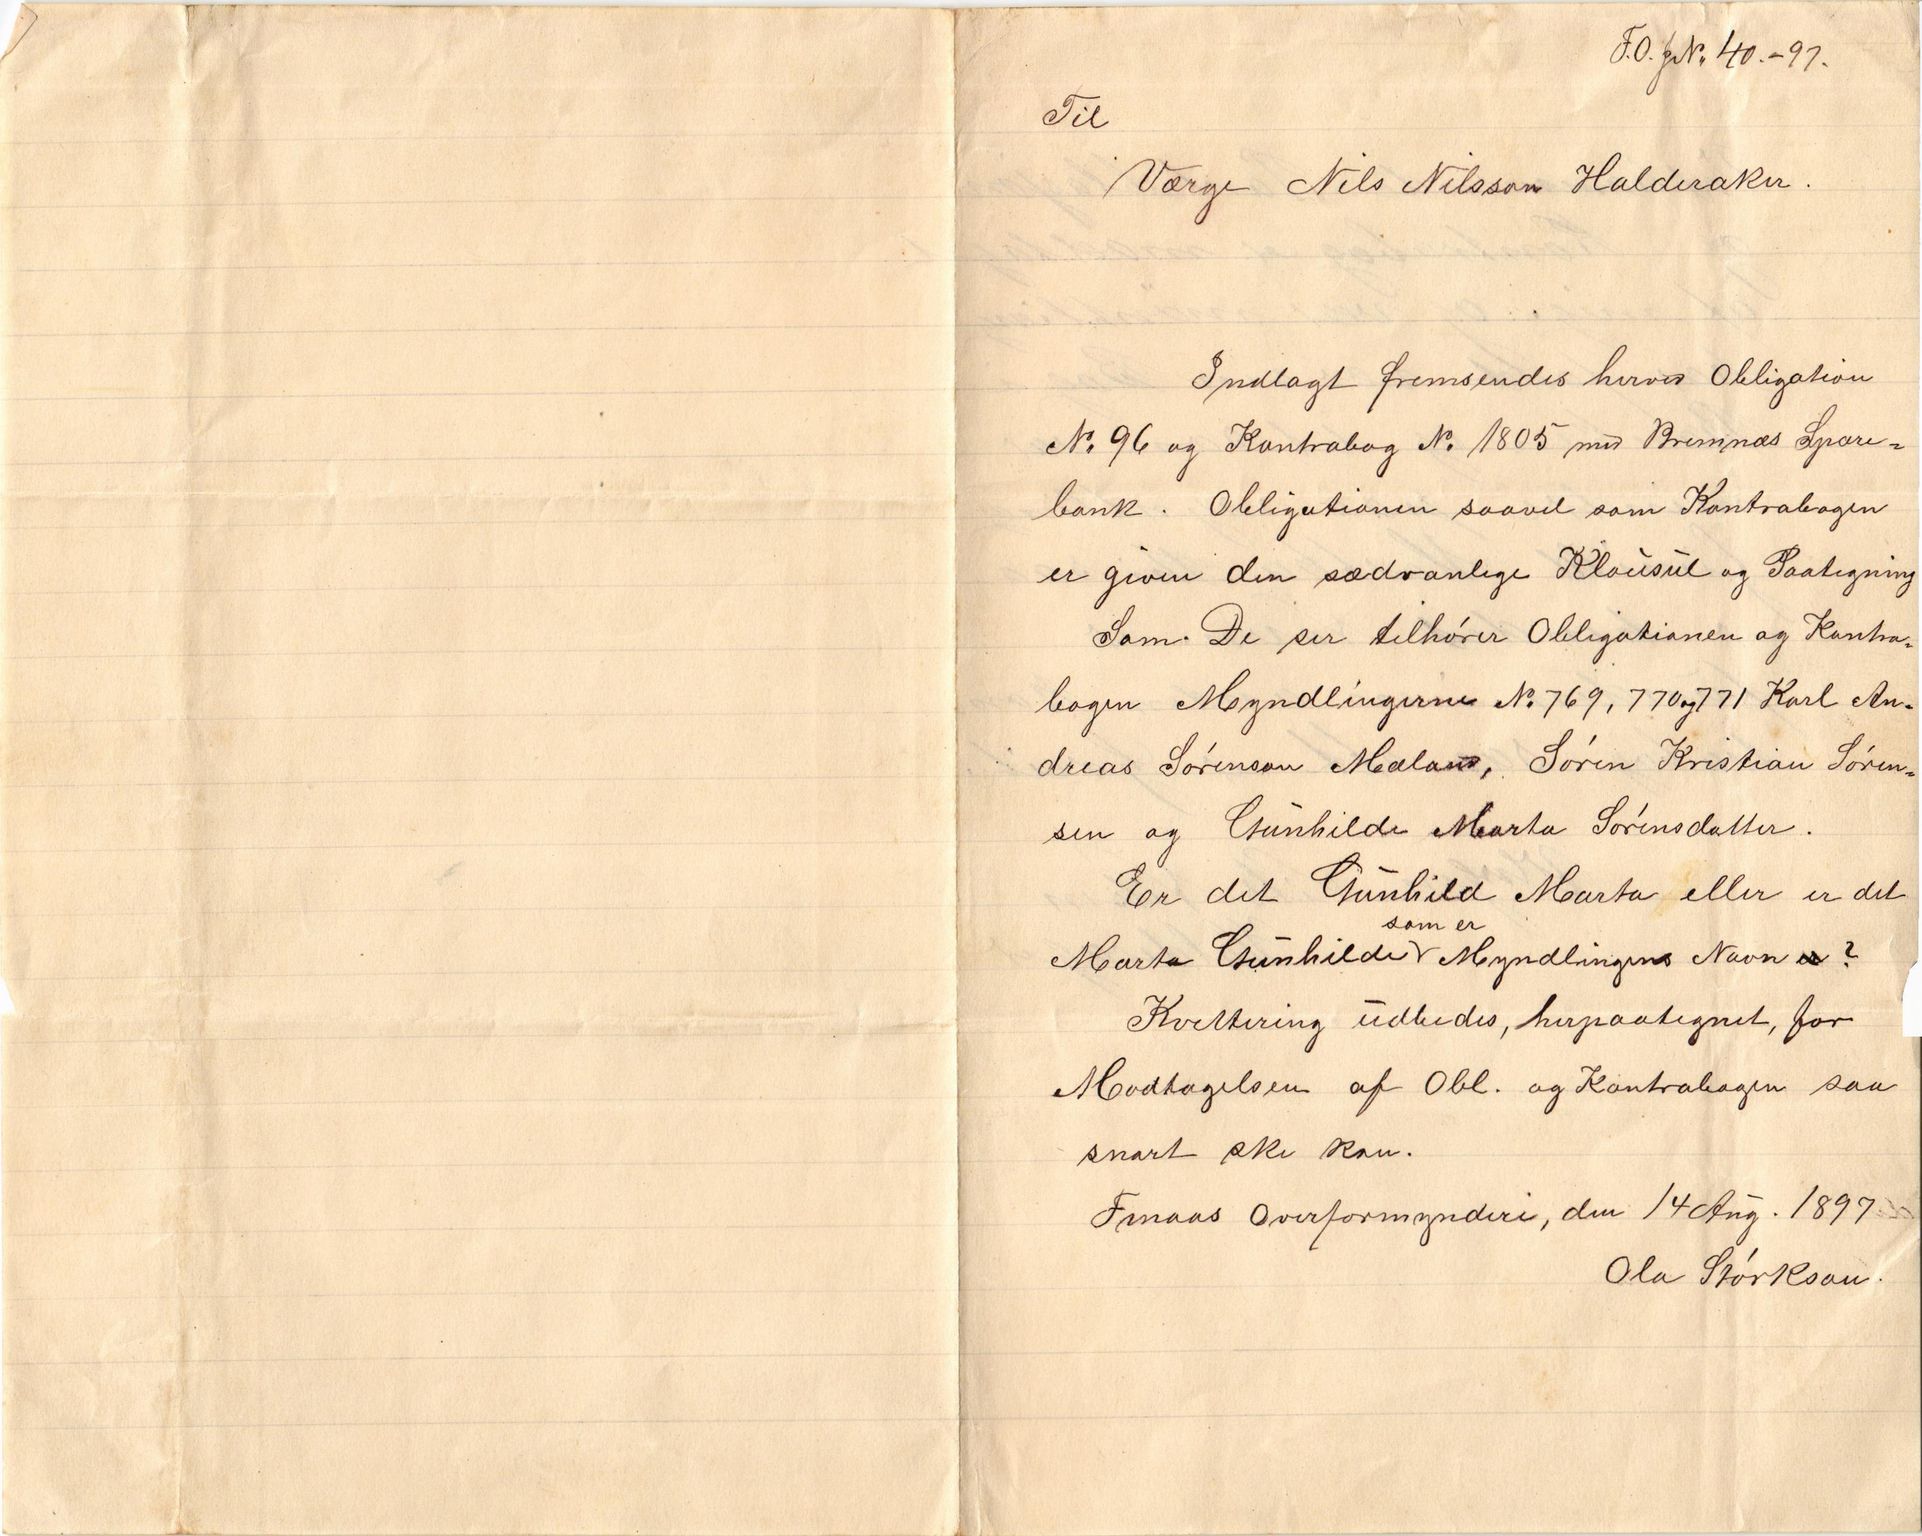 F.O. jN. 40.-97.
Til
Værge Nils Nilsson Halderaker.
Indlagt fremsendes herved Obligation
N. 96 og Kontrabog N. 1805 med Bremnæs Spare-
bank. Obligationen saavel som Kontrabogen
er given den sædvanlige Klousul og Paategning
Som De ser tilhører Obligationen og Kontra-
bogen Myndlingerne N. 769, 770 og 771 Karl An-
dreas Sørenson Mæland, Søren Kristian Søren-
sen og Gunhilde Marta Sørensdatter.
Er det Gunhild Marta eller er det
som er
Marta Gunhilde Myndlingens Navn ?
Kvittering udbedes, herpaategnet, for
Modtagelsen af Obl. og Kontrabogen saa
snart ske kan.
Finaas Overformynderi, den 14 Aug. 1897
Ola Størkson.